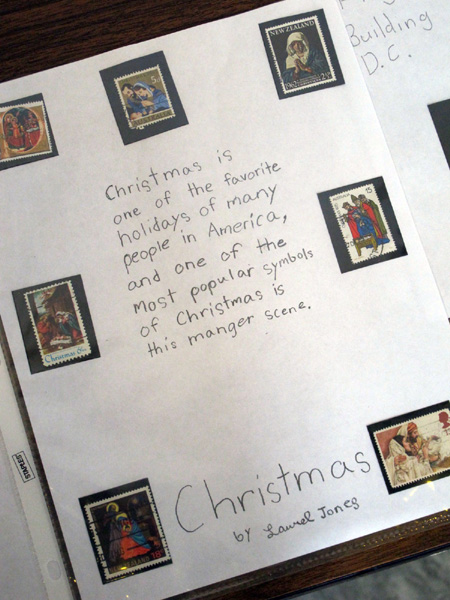 NEW ZEALAND
Building
D.C.
Christmas is
one of the favorite
holidays of many
people in America,
and one of the
most popular symbols
of Christmas is
this manger scene.
Christmas
STAPLES
Christmas
by Laurel Jones